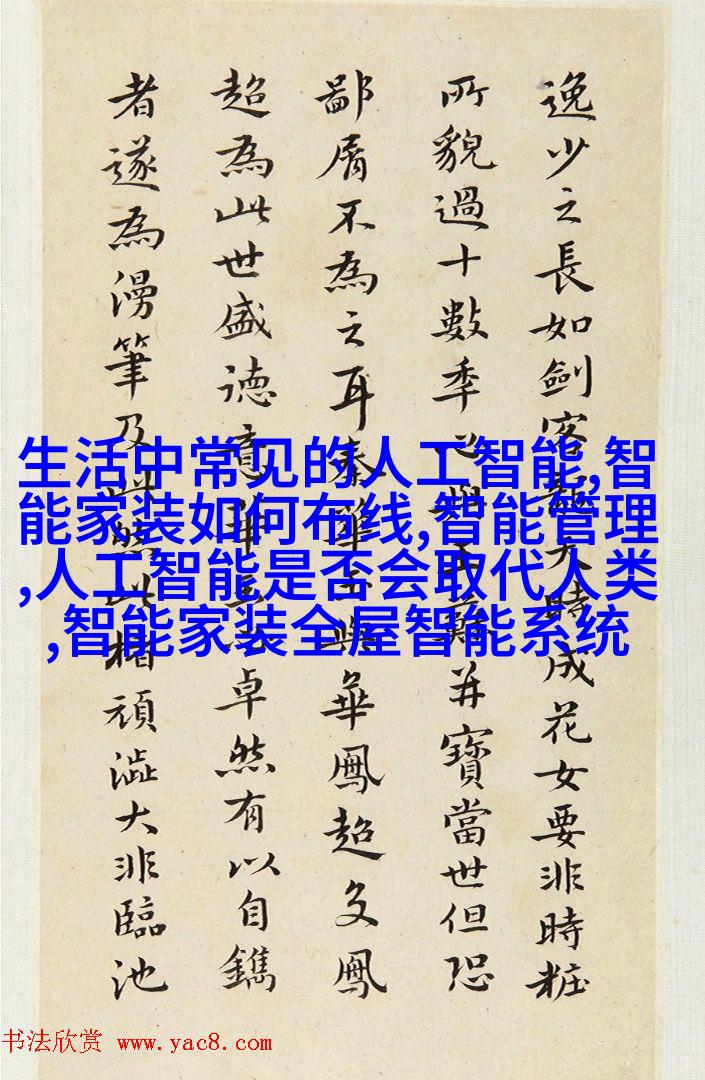 逸少之長如劍客時成花女要非時粧
所貌過十數季蘇并寶當世但恐
鄙屑不為之耳秦華玉與華鳳超文鳳
超為此世盛德意卓然有以自鐫
者遂為漫筆及此楮頑澁大非臨池
生活中常见的人工智能,智
能家装如何布线,智能管理
,人工智能是否会取代人类
,智能家装全屋智能系统
书法欣赏 www.yac8.com